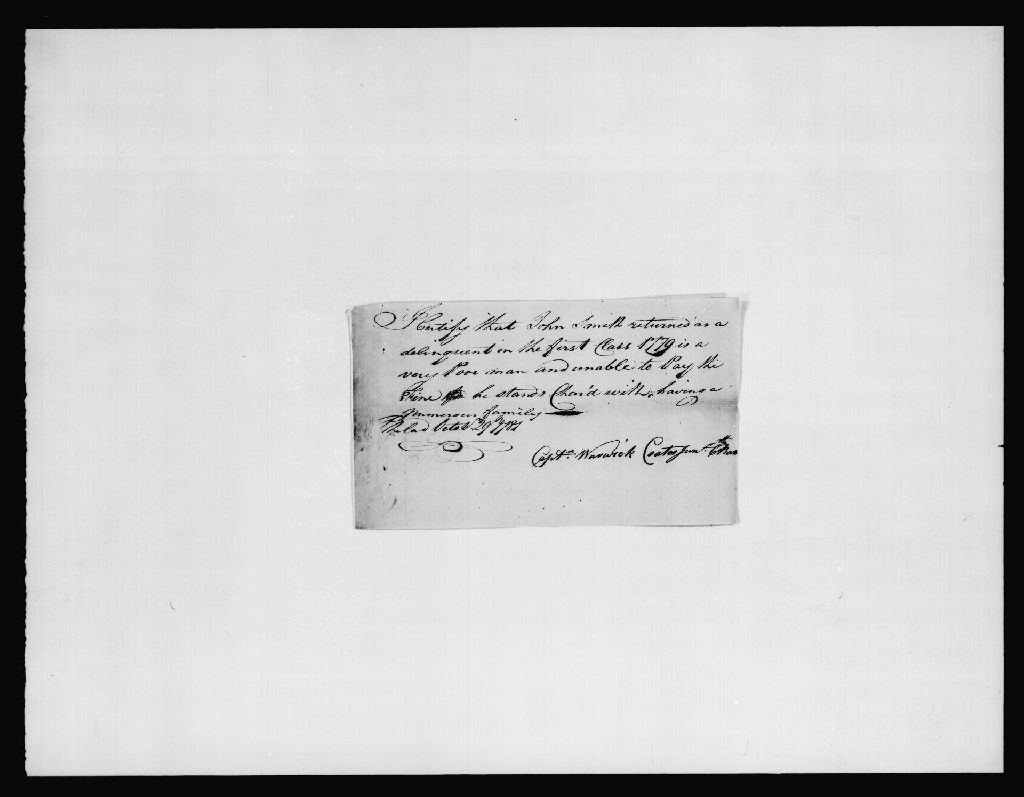 I Certify that John Smith returned as a
delinquent in the first Class 1779 is a
very Poor man and unable to Pay the
Fine he stands Char'd with, having a
numerous family
Philad Octob 29 1781
Capt.n Warwick Coates Jun.r